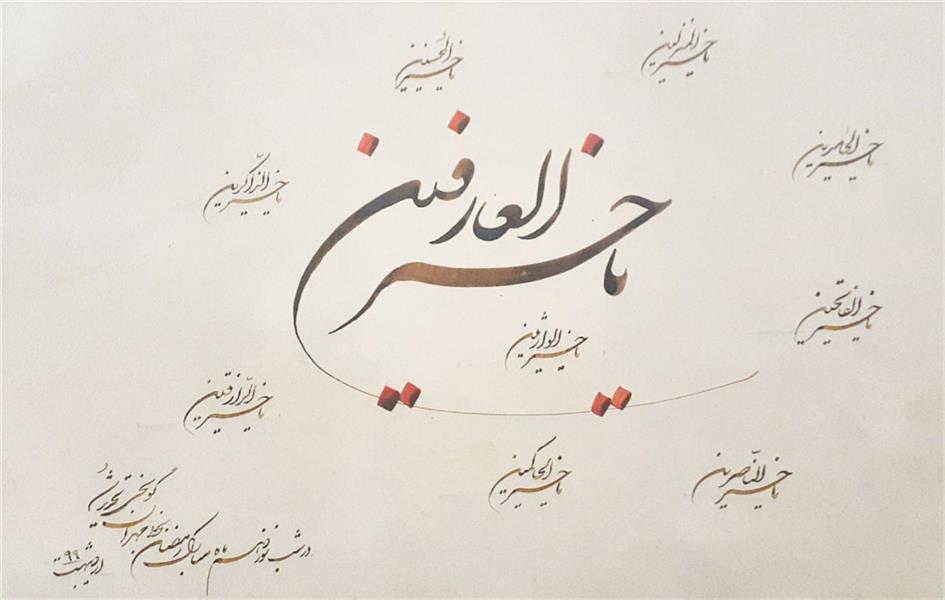 یا خیر المنزلین
یا خیر المحسنین
یا خیر الحامدین
یا خیر العارفین
یا خیر الذّاکرین
یا خیر الفاتحین
یا خیر الوارثین
یا خیر الرّازقین
یا خیر النّاصرین
یا خیر الحاکمین
در شب نوزدهم ماه مبارک رمضان
بخط مهران
تحریر شد
اردیبهشت ۹۹